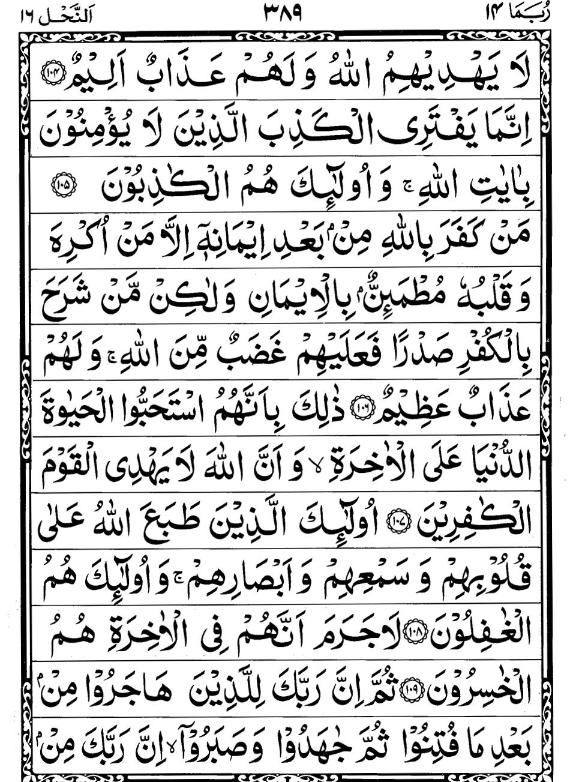 رُبَمَا ١٤ ٣٨٩ اَلنَّحْل ١٦
لَا يَهْدِيْهِمُ اللّٰهُ وَلَهُمْ عَذَابٌ اَلِيْمٌ ۝۱۰۴
اِنَّمَا يَفْتَرِى الْكَذِبَ الَّذِيْنَ لَا يُؤْمِنُوْنَ
بِاٰيٰتِ اللّٰهِ ۚ وَاُولٰٓئِكَ هُمُ الْكٰذِبُوْنَ ۝۱۰۵
مَنْ كَفَرَ بِاللّٰهِ مِنْۢ بَعْدِ اِيْمَانِهٖۤ اِلَّا مَنْ اُكْرِهَ
وَقَلْبُهٗ مُطْمَئِنٌّۢ بِالْاِيْمَانِ وَلٰكِنْ مَّنْ شَرَحَ
بِالْكُفْرِ صَدْرًا فَعَلَيْهِمْ غَضَبٌ مِّنَ اللّٰهِ ۚ وَلَهُمْ
عَذَابٌ عَظِيْمٌ ۝۱۰۶ ذٰلِكَ بِاَنَّهُمُ اسْتَحَبُّوا الْحَيٰوةَ
الدُّنْيَا عَلَى الْاٰخِرَةِ ۙ وَاَنَّ اللّٰهَ لَا يَهْدِى الْقَوْمَ
الْكٰفِرِيْنَ ۝۱۰۷ اُولٰٓئِكَ الَّذِيْنَ طَبَعَ اللّٰهُ عَلٰى
قُلُوْبِهِمْ وَسَمْعِهِمْ وَاَبْصَارِهِمْ ۚ وَاُولٰٓئِكَ هُمُ
الْغٰفِلُوْنَ ۝۱۰۸ لَاجَرَمَ اَنَّهُمْ فِى الْاٰخِرَةِ هُمُ
الْخٰسِرُوْنَ ۝۱۰۹ ثُمَّ اِنَّ رَبَّكَ لِلَّذِيْنَ هَاجَرُوْا مِنْۢ
بَعْدِ مَا فُتِنُوْا ثُمَّ جٰهَدُوْا وَصَبَرُوْۤا ۙ اِنَّ رَبَّكَ مِنْۢ